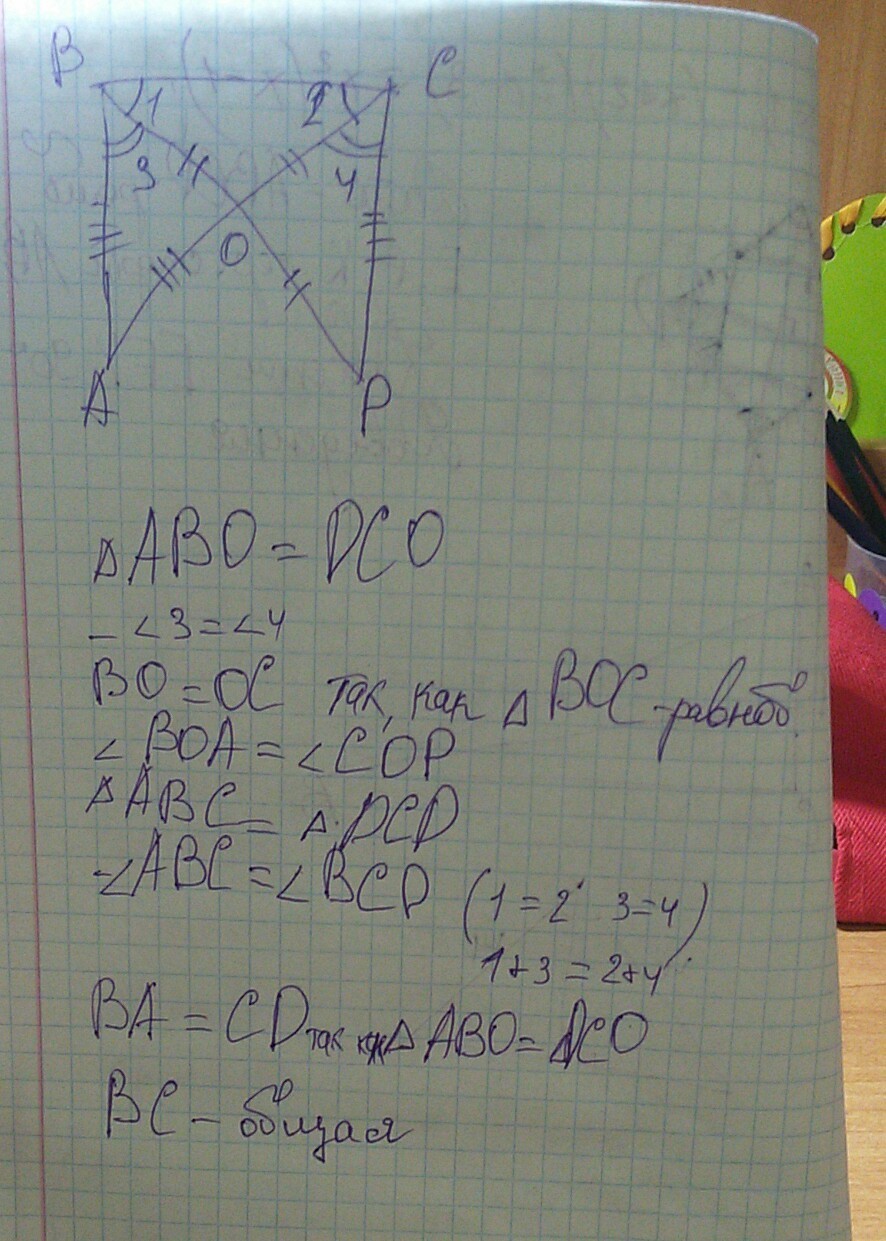 B C
1 2
3 4
O
A D
△ABO = DCO
- ∠3 = ∠4
BO = OC так, как △BOC - равноб
∠BOA = ∠COD
△ABC = △DCD
- ∠ABC = ∠BCD (1 = 2 3 = 4)
1+3 = 2+4
BA = CD так как △ABO = DCO
BC - общая